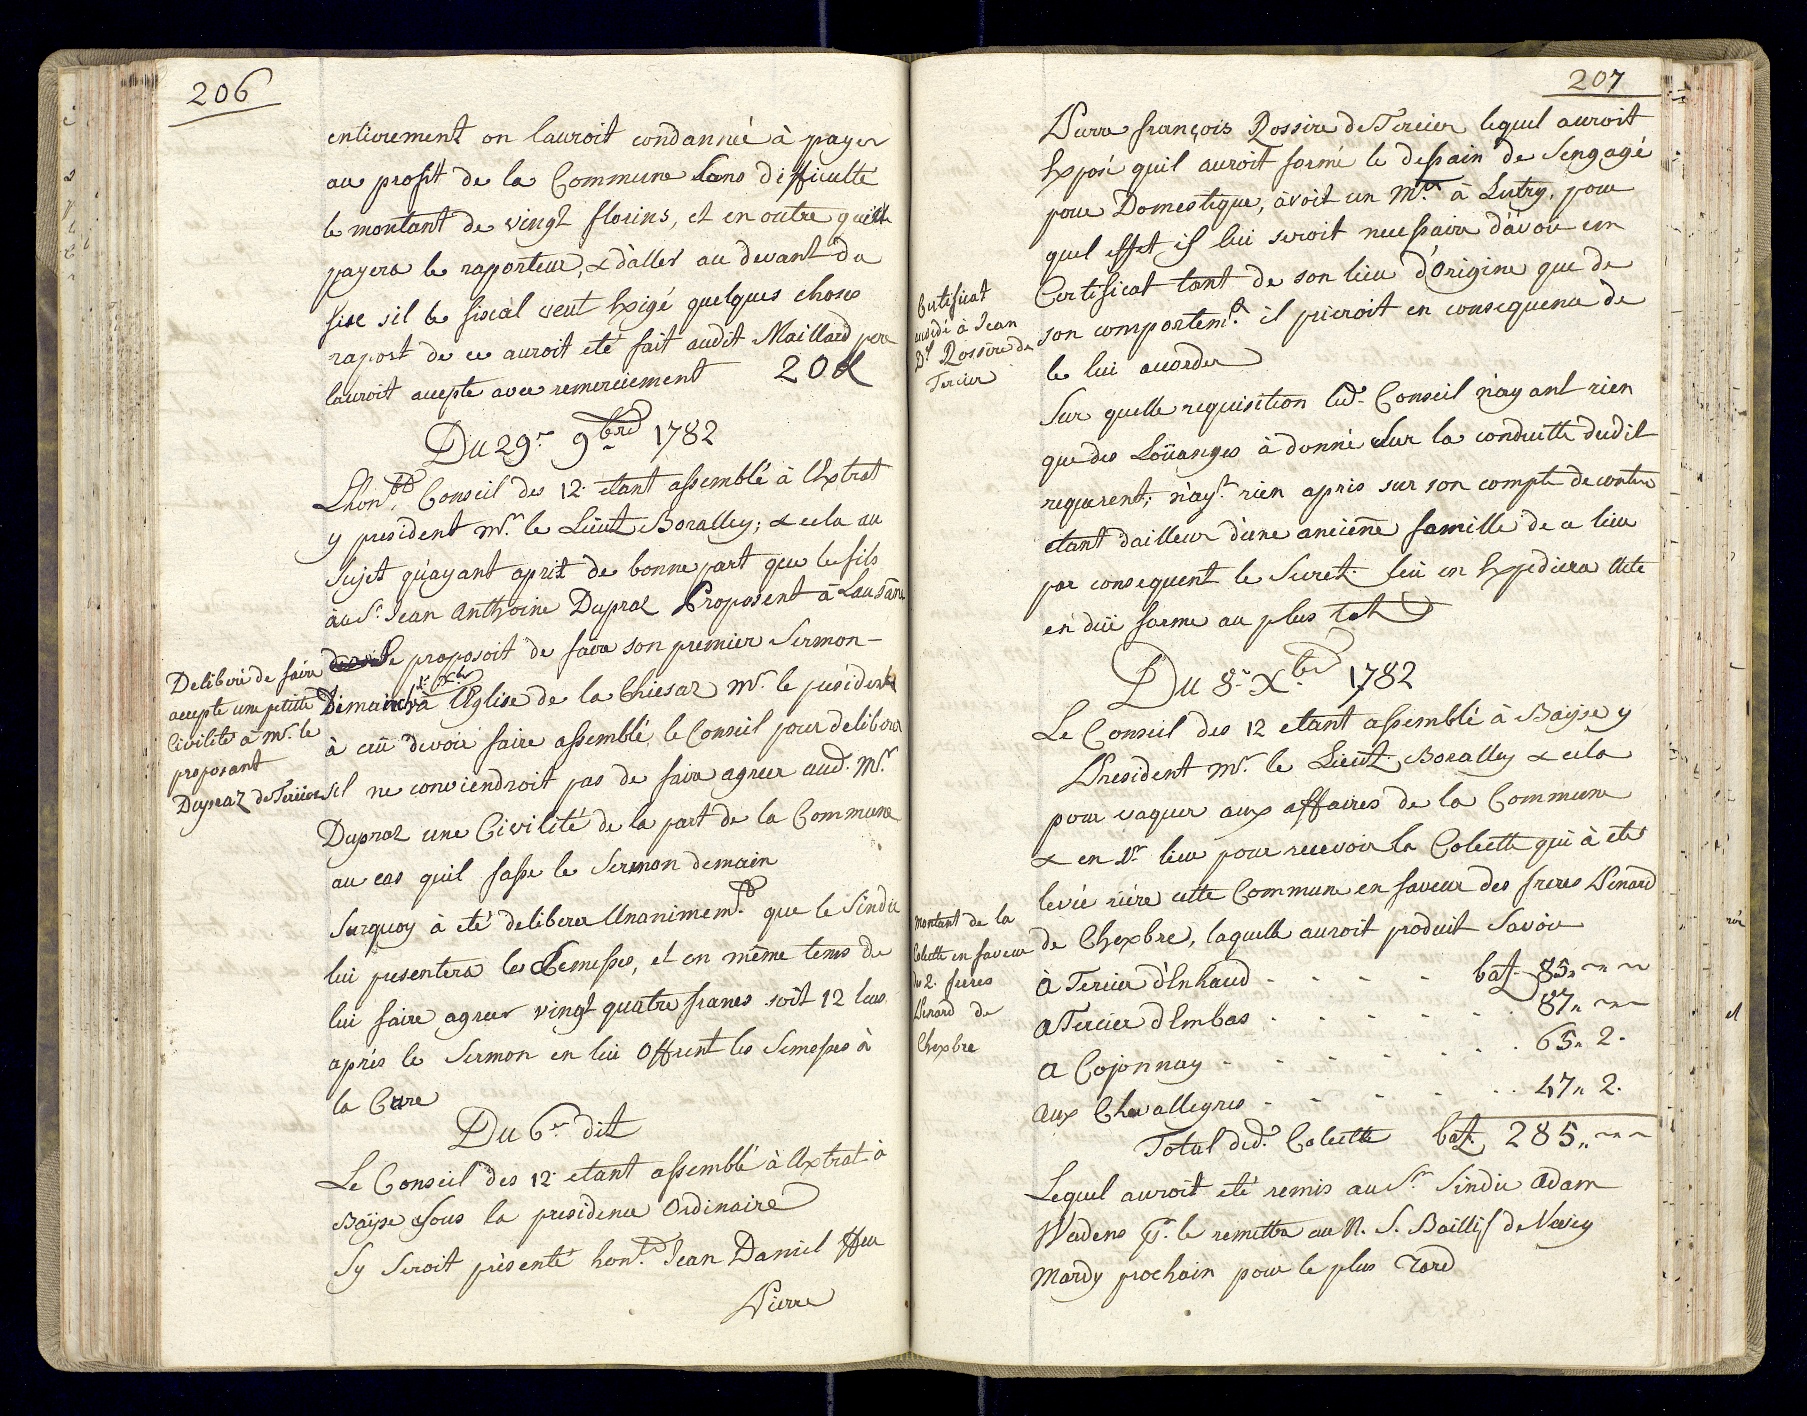 206
entierement on lauroit condanné à payer
au profit de la Commune sans difficulté
le montant de vingt florins, et en outre quil
payera le raporteur, & d'aller au devant du
fisc sil le fiscal veut Exigé quelques choses
raport de ce auroit eté fait audit Maillard pere
lauroit accepte avec remerciement 20 fl
Du 29e 9bre 1782
Lhon.ble Conseil des 12 etant assemblé à lextrat
y president Mr. le Lieut Boralley; & cela au
Sujet quayant aprit de bonne part que le fils
au Sr. Jean Anthoine Dupraz Proposent à Lausane
se proposoit de faire son premier Sermon
Dimanche 1r Xbre à l'Eglise de la Chiesaz Mr. le president
à crû devoir faire assemblé le Conseil pour deliberer
sil ne conviendroit pas de faire agreer aud. Mr.
Dupraz une Civilité de la part de la Commune
au cas quil fasse le Sermon demain
Surquoy à eté deliberer Unanimem.t que le Sindic
lui presentera les Semesses, et en même tems de
lui faire agreer vingt quatre francs soit 12 Lus
aprés le Sermon en lui Offrent les Semesses à
la Cure
Du 6e dit
Le Conseil des 12 etant assemblé à lextrat à
Bayse sous la presidence Ordinaire
Sy Seroit présenté hon.ble Jean Daniel ffeu
Pierre
Deliberé de faire
accepte une petitte
Civilité à Mr. le
proposant
Dupraz de Tercier
207
Pierre françois Rossire de Tercier lequel auroit
Exposé quil auroit formé le dessain de Sengagé
pour Domestique, àvoit un Mtre à Lutry, pour
quel effet il lui seroit necessaire d'àvoir un
Certificat tant de son lieu d'Origine que de
son comportem.t il prieroit en consequence de
le lui accorder
Sur quelle requisition led. Conseil n'ayant rien
que des Loüanges à donné sur la conduitte dudit
requerent, n'ayt. rien apris sur son compte de contre
etant dailleur d'une anciene famille de ce lieu
par consequent le Secret. lui en Expediera Acte
en düe forme au plus tot
Certificat
accordé à Jean
Dl Rossire de
Tercier
Du 8e Xbre 1782
Le Conseil des 12 etant assemblé à Bayse y
President Mr. le Lieut. Boralley & cela
pour vaquer aux affaires de la Commune
& en 1r lieu pour recevoir la Colecte qui à eté
levée riére cette Commune en faveur des freres Penard
de Chexbre, laquelle auroit produit Savoir
à Tercier d'Enhaud - - - - batz 85 " ~ ~
à Tercier d'Embas - - - - - 87 " ~ ~
à Cojonnay - - - - - 65 " 2.
aux Chevallegres - - - - - 47 " 2.
Total dud. Colecte batz 285 " ~ ~
Lequel auroit eté remis au Sr. Sindic Adam
Wadens pr. le remettre au N. S. Baillif de Vevey
Mardy prochain pour le plus Tard
Montant de la
Colecte en faveur
des 2. freres
Penard de
Chexbre